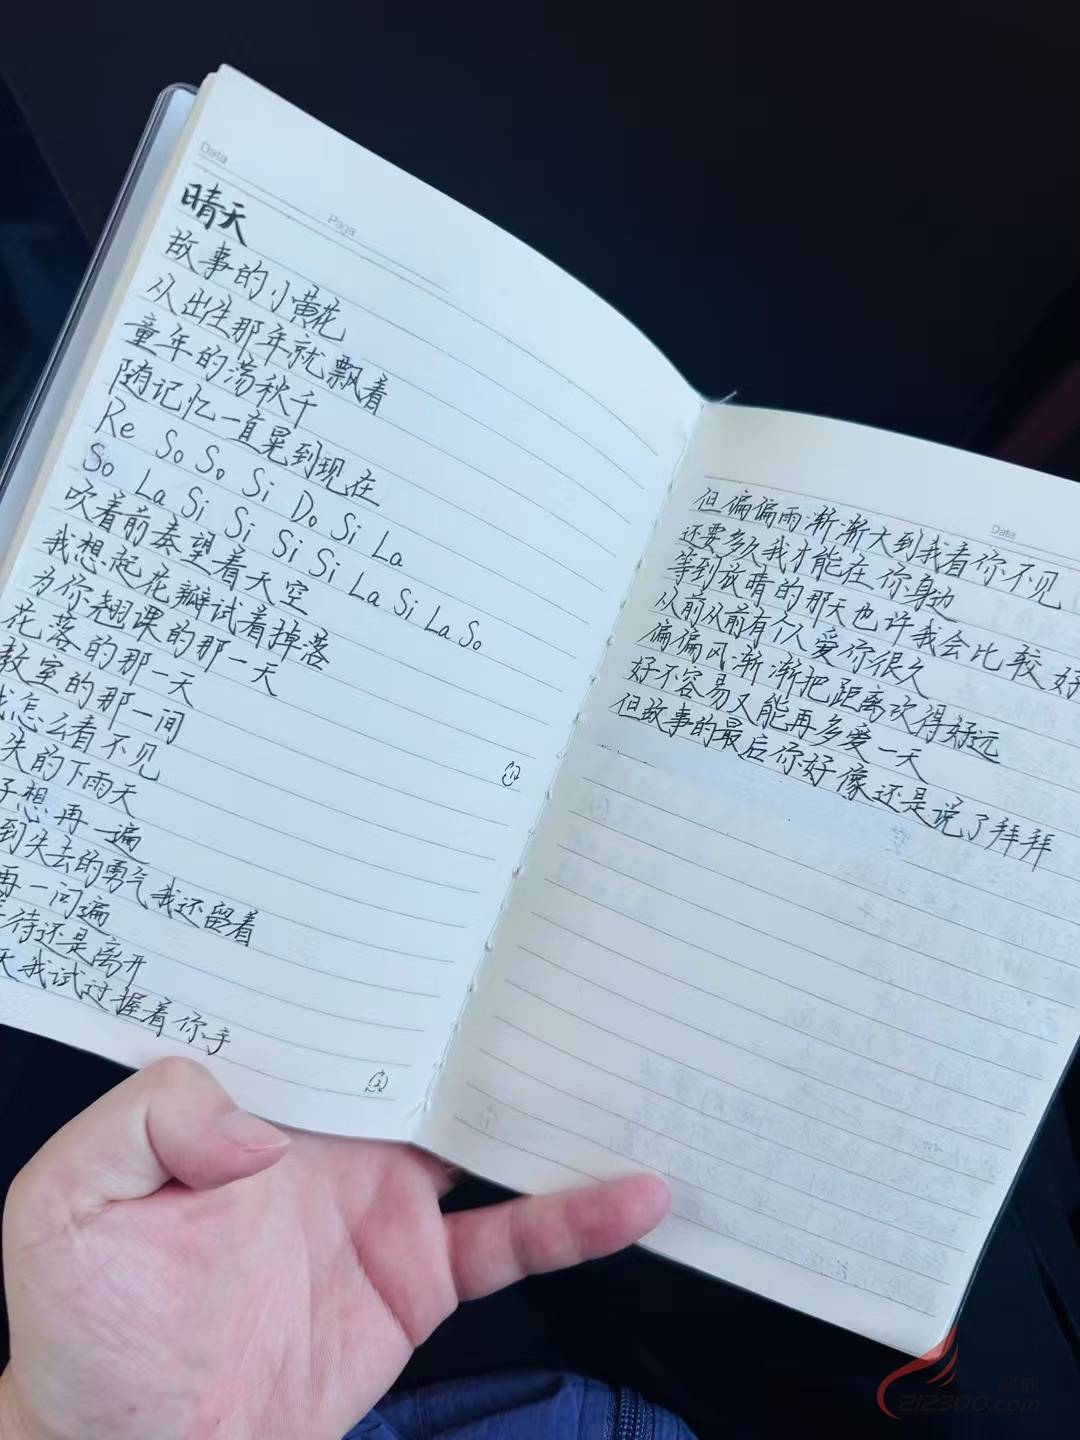 Data
Page
晴天
故事的小黄花
从出生那年就飘着
童年的荡秋千
随记忆一直晃到现在
Re So So Si Do Si La
So La Si Si Si Si La Si La So
吹着前奏望着天空
我想起花瓣试着掉落
为你翘课的那一天
花落的那一天
教室的那一间
我怎么看不见
失的下雨天
子想再一遍
到失去的勇气我还留着
再一问遍
待还是离开
天我试过握着你手
Data
但偏偏雨渐渐大到我看你不见
还要多久我才能在你身边
等到放晴的那天也许我会比较好
从前从前有个人爱你很久
偏偏风渐渐把距离吹得好远
好不容易又能再多爱一天
但故事的最后你好像还是说了拜拜
212300.com